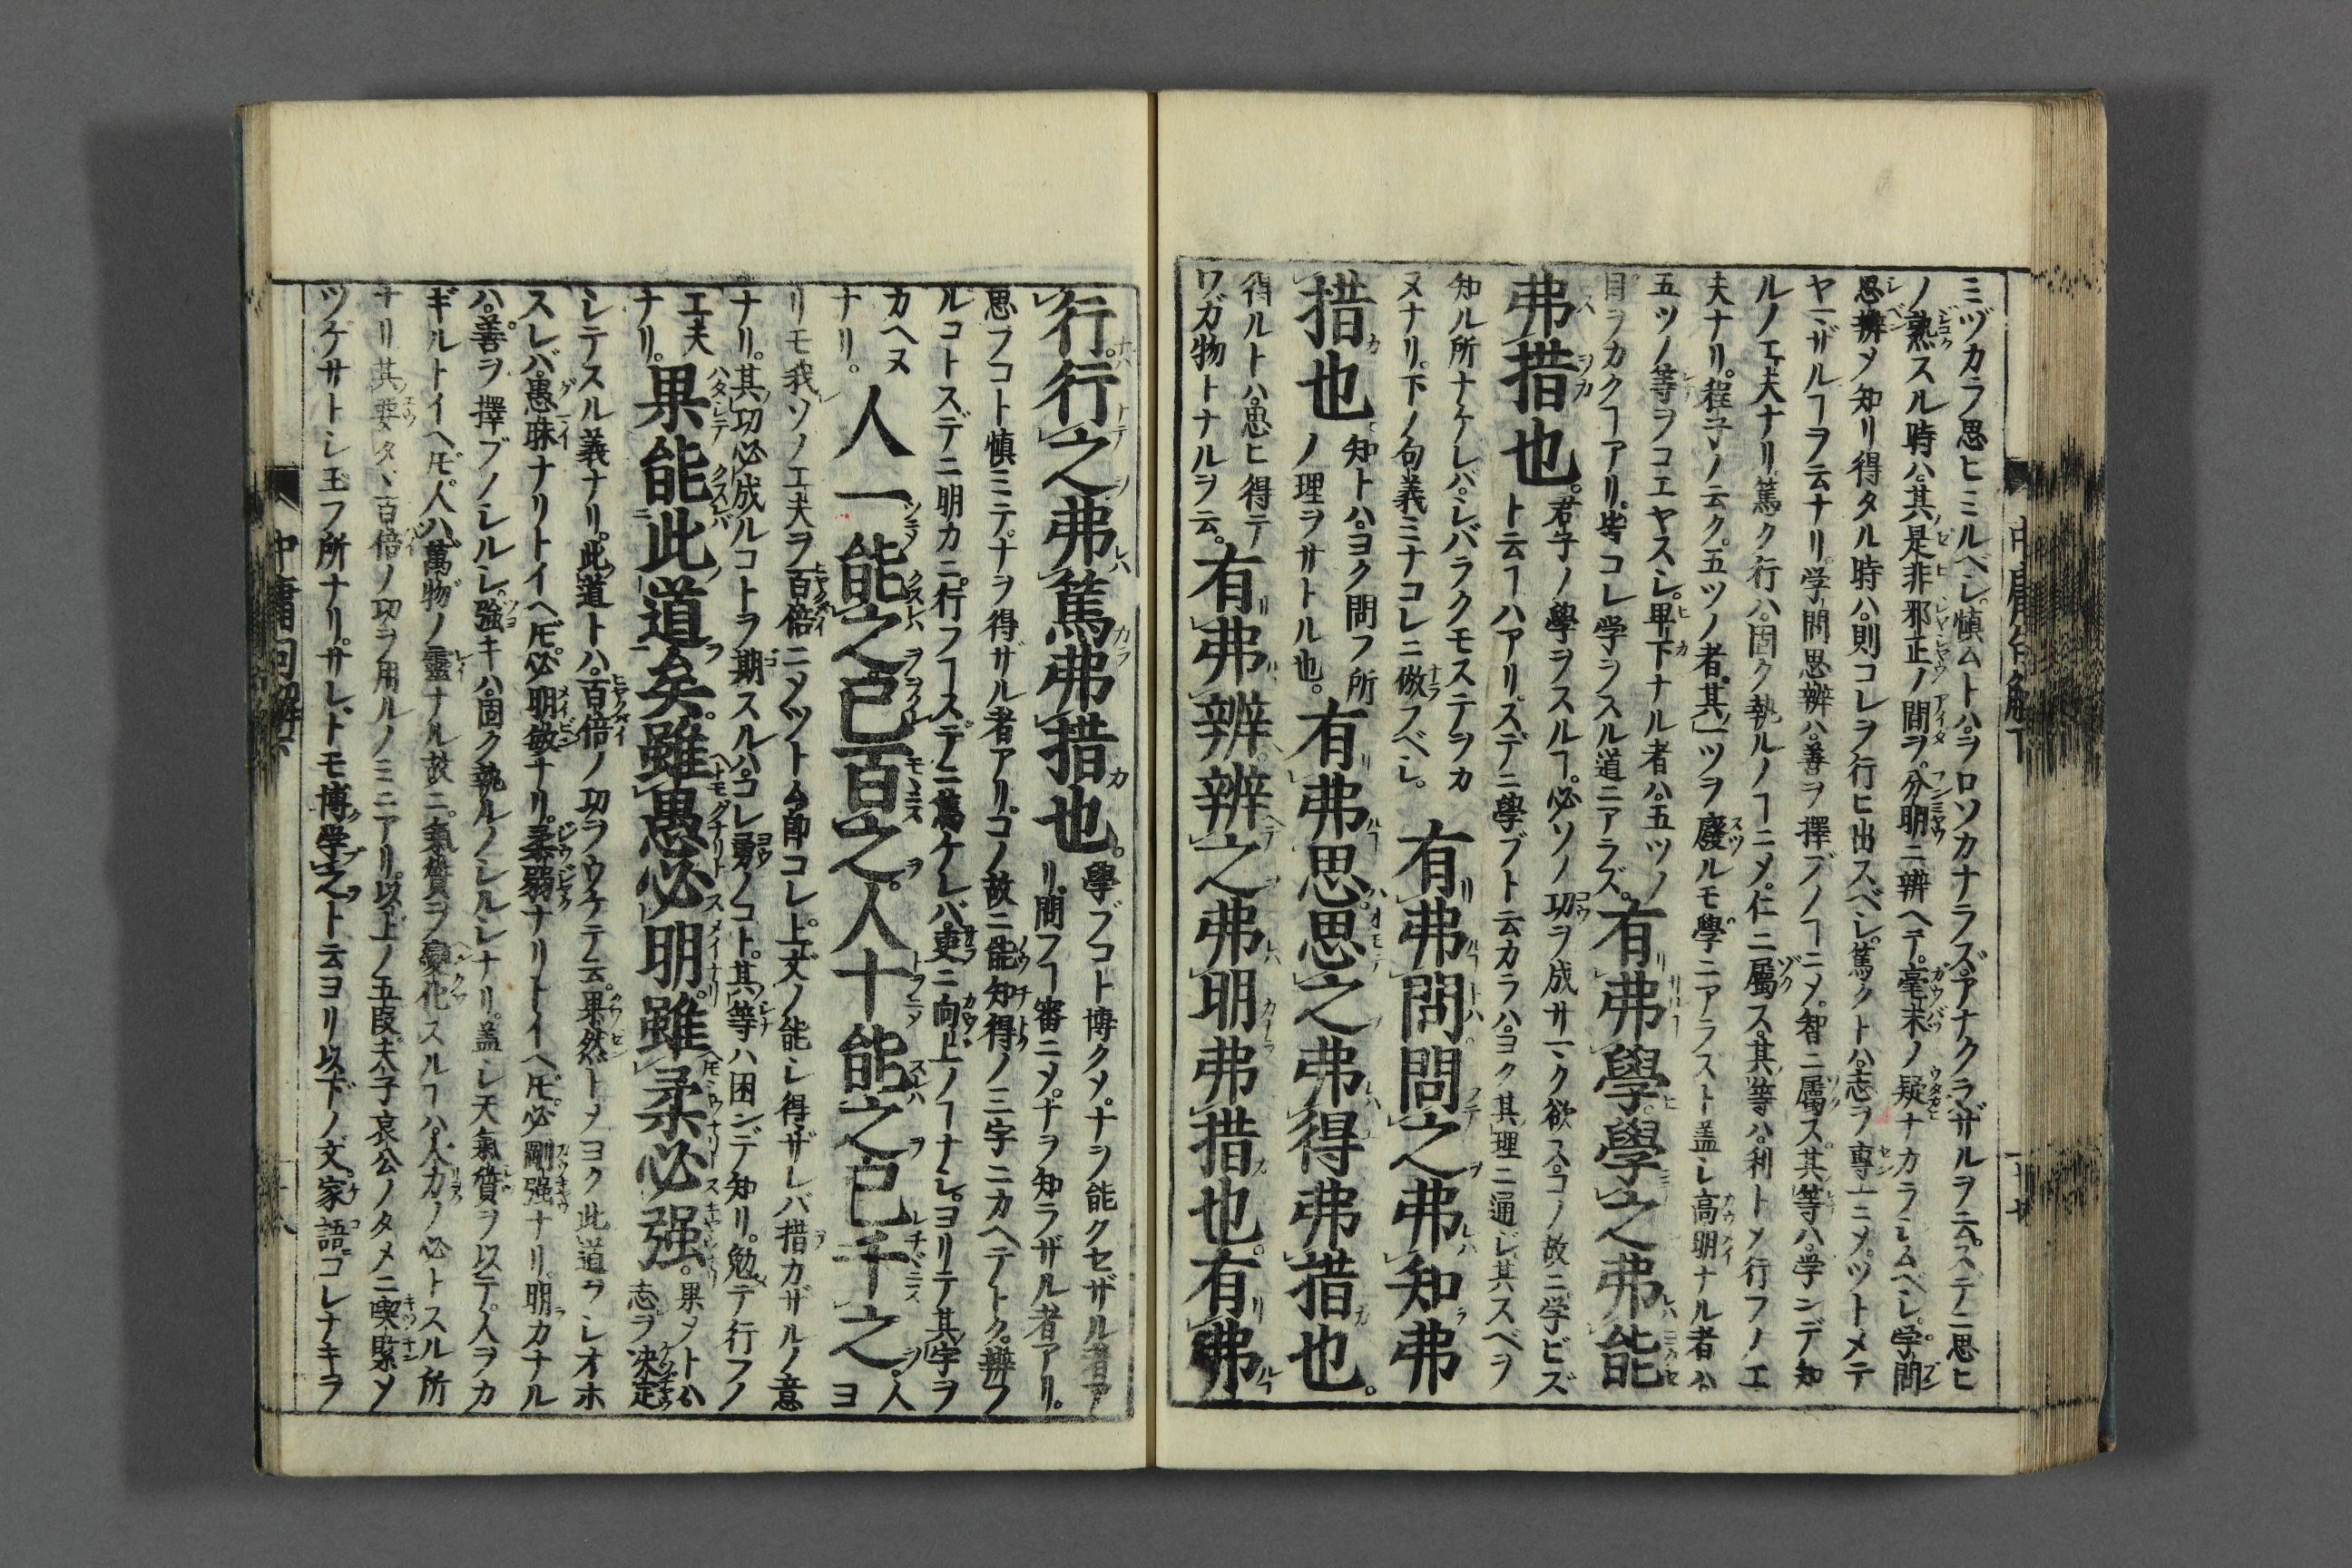 中庸句解下
ミヅカラ思ヒミルベシ。慎ムトハ。ヲロソカナラズ。アナクラザルヲ云。スデニ思ヒ
ノ熟スル時ハ。其是非邪正ノ間ヲ。分明ニ辨ヘテ。毫末ノ疑ナカラシムベシ。学問
思辨メ知リ得タル時ハ。則コレヲ行ヒ出スベシ。篤クトハ。志ヲ專一ニメ。ツトメテ
ヤマザルヿヲ云ナリ。学問思辨ハ。善ヲ擇ブノヿニメ。智ニ屬ス。其等ハ。学ンデ知
ルノ工夫ナリ。篤ク行ハ。固ク執ルノヿニメ。仁ニ屬ス。其等ハ。利トメ行フノ工
夫ナリ。程子ノ云ク。五ツノ者。其一ツヲ廢ルモ。學ニアラスト。蓋シ高明ナル者ハ
五ツノ等ヲコエヤスシ。卑下ナル者ハ。五ツノ
目ヲカクヿアリ。皆コレ学ヲスル道ニアラズ。
有弗學。學之弗能
弗措也。
君子ノ學ヲスルヿ。必ソノ功ヲ成サマク欲ス。コノ故ニ学ビズ
ト云ヿハアリ。スデニ學ブト云カラハ。ヨク其理ニ通ジ。其スベヲ
知ル所ナケレバ。シバラクモステヲカ
ヌナリ。下ノ句義ミナコレニ倣フベシ。
有弗問。問之弗知弗
措也。
知トハ。ヨク問フ所
ノ理ヲサトル也。
有弗思。思之弗得弗措也。
得ルトハ。思ヒ得テ
ワガ物トナルヲ云。
有弗辨。辨之弗明弗措也。有弗
行。行之弗篤弗措也。
學ブコト博クメ。ナヲ能クセザル者ア
リ。問フヿ審ニメ。ナヲ知ラザル者アリ。
思フコト慎ミテ。ナヲ得ザル者アリ。コノ故ニ能知得ノ三字ニカヘテトク。辨フ
ルコトスデニ明カニ。行フヿスデニ篤ケレバ。更ニ向上ノヿナシ。ヨリテ其字ヲ
カヘヌ
ナリ。
人一能之己百之。人十能之己千之。
人
ヨ
リモ我ソノ工夫ヲ百倍ニメツトム。即コレ上文ノ能シ得ザレバ措カザルノ意
ナリ。其功必成ルコトヲ期スルハ。コレ勇ノコト。其等ハ困ンデ知リ。勉テ行フノ
工夫
ナリ。
果能此道矣。雖愚必明。雖柔必强。
果メトハ
志ヲ决定
シテスル義ナリ。此道トハ。百倍ノ功ヲウケテ云。果然トメヨク此道ヲシオホ
スレバ。愚昧ナリトイヘ𪜈。必明敏ナリ。柔弱ナリトイヘ𪜈。必剛强ナリ。明カナル
ハ。善ヲ擇ブノシルシ。強キハ。固ク執ルノシルシナリ。蓋シ天氣質ヲ以テ。人ヲカ
ギルトイヘ𪜈。人ハ萬物ノ靈ナル故ニ。氣質ヲ變化スルヿハ。人力ノ必トスル所
ナリ。其要タヾ百倍ノ功ヲ用ルノミニアリ。以上ノ五段。夫子哀公ノタメニ喫緊ソ
ツゲサトシ玉フ所ナリ。サレトモ博学之ト云ヨリ以下ノ文。家語コレナキヲ
中庸句解下